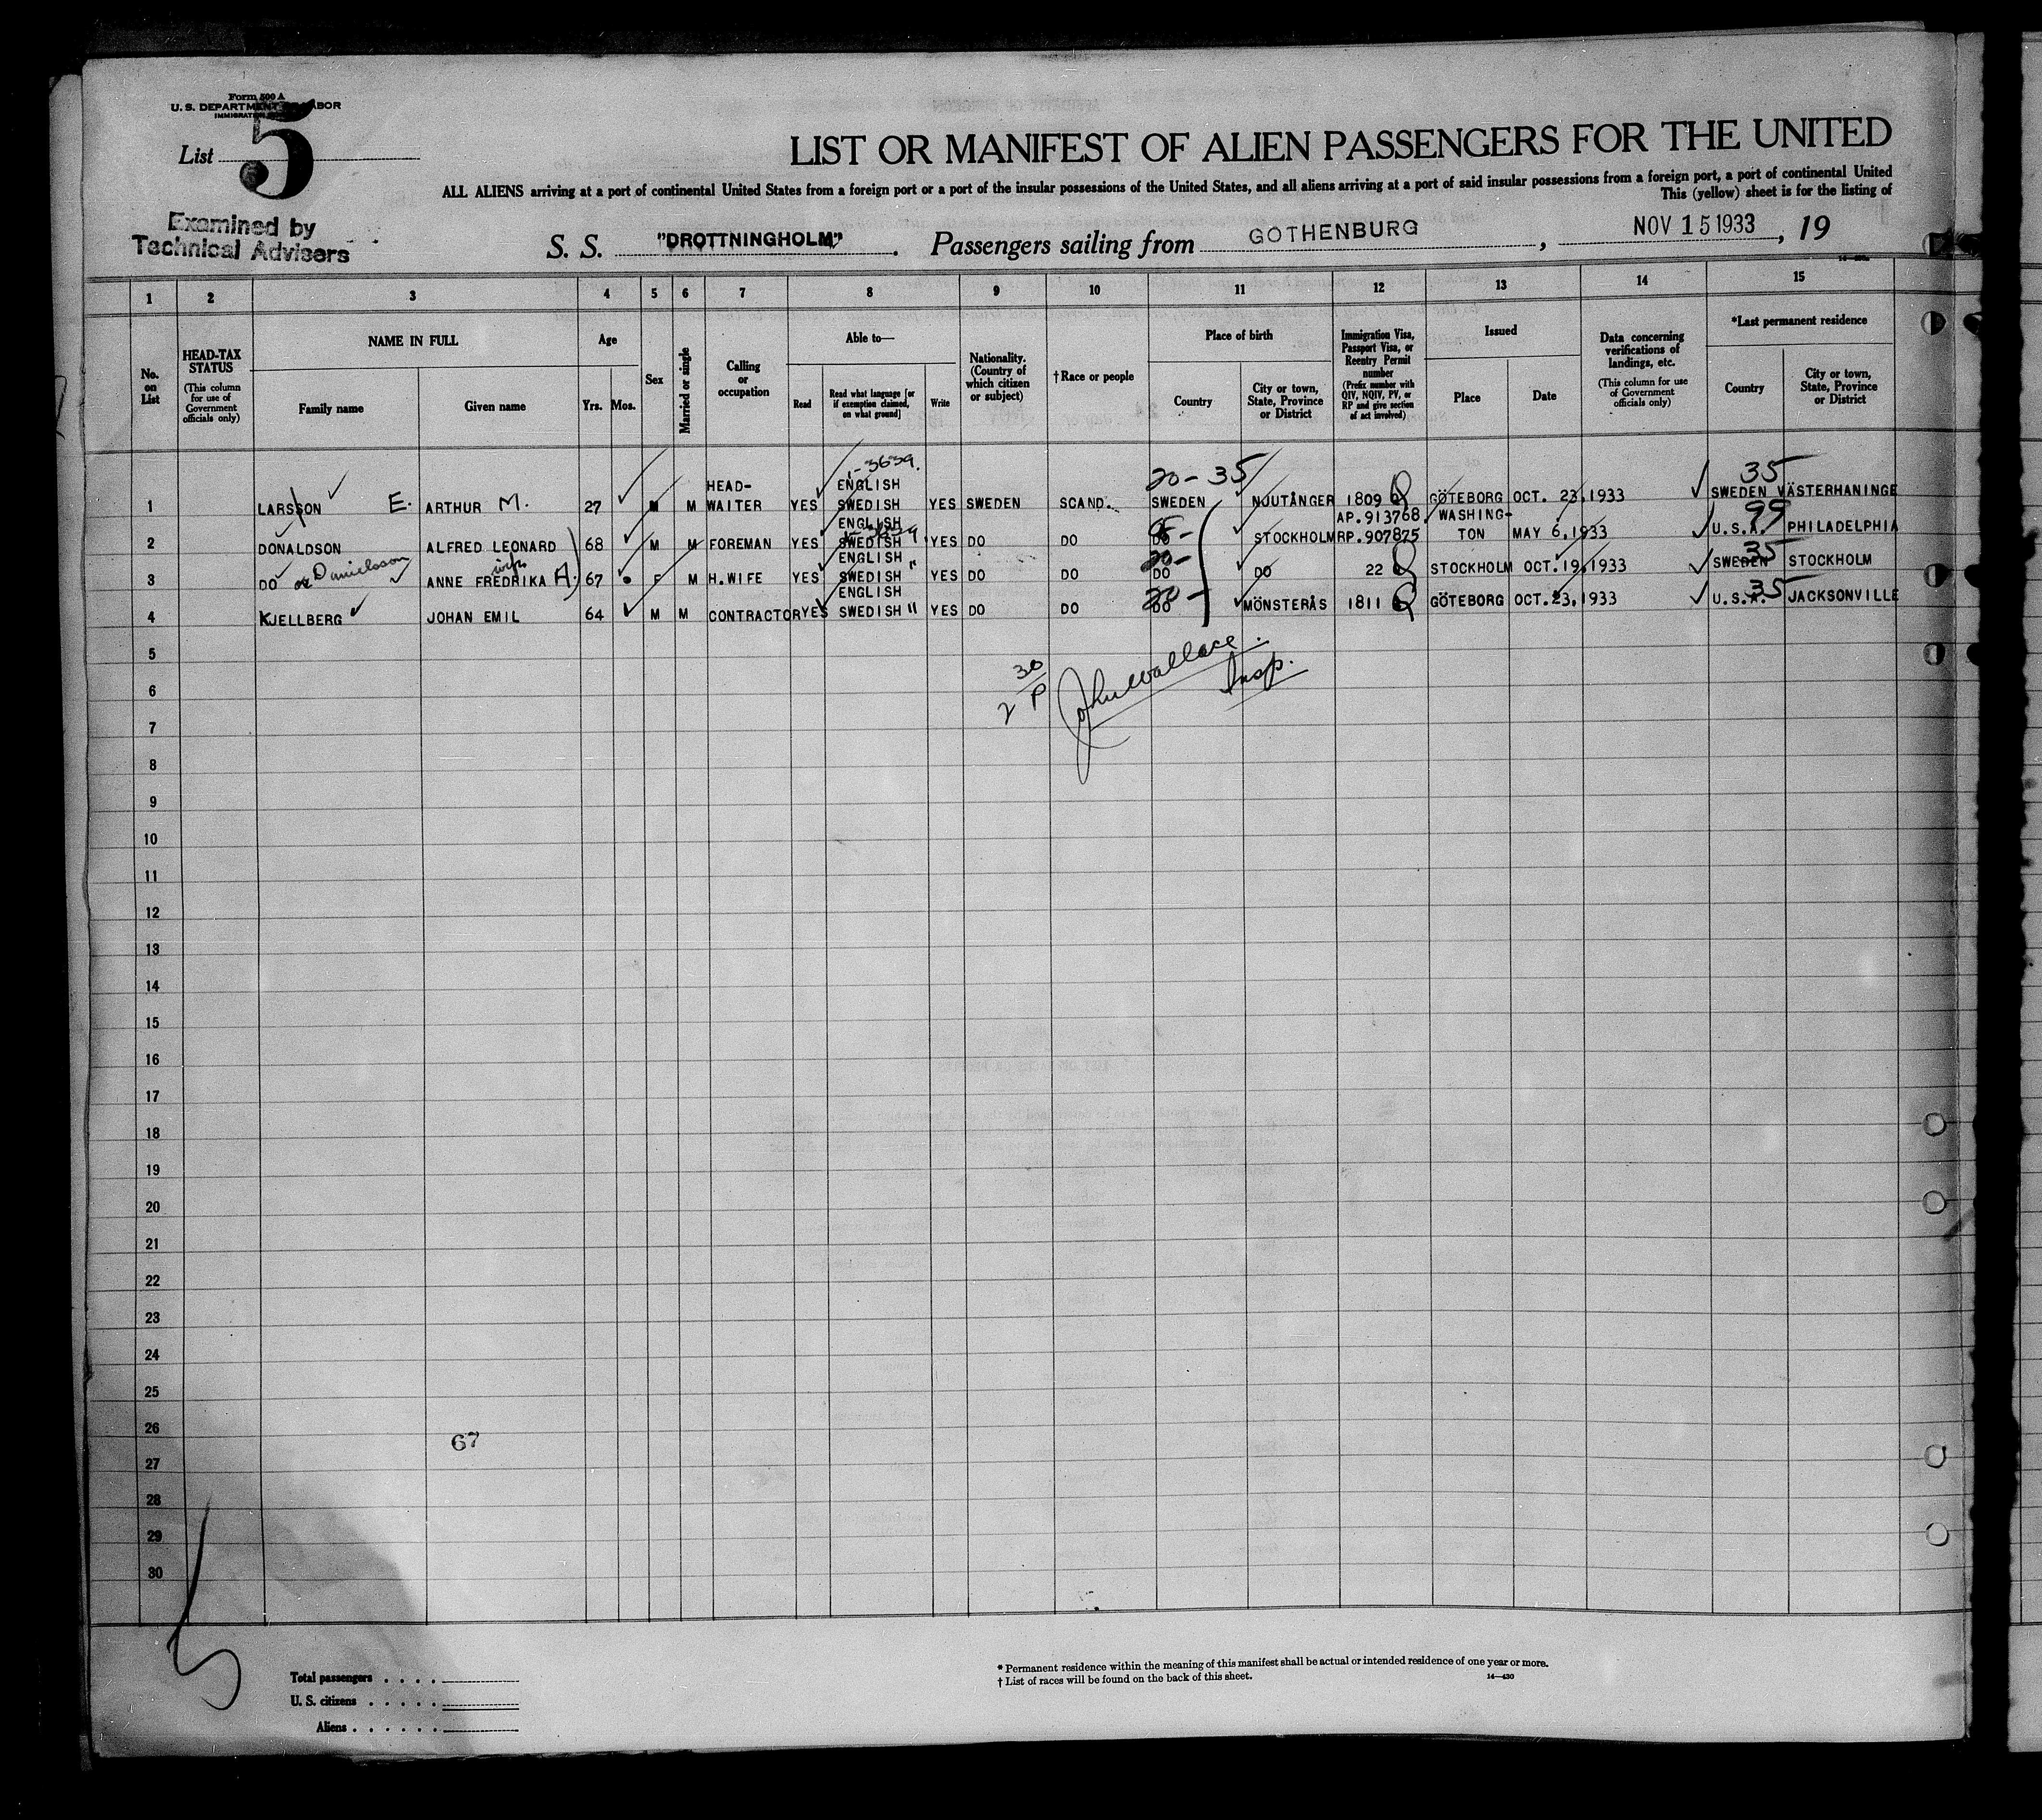 Form 500 A
U. S. DEPARTMENT LABOR
IMMIGRATION
List 5
LIST OR MANIFEST OF ALIEN PASSENGERS FOR THE UNITED
ALL ALIENS arriving at a port of continental United States from a foreign port or a port of the insular possessions of the United States, and all aliens arriving at a port of said insular possessions from a foreign port, a port of continental United
This (yellow) sheet is for the listing of
Examined by
Technical Advisers
S. S. "DROTTNINGHOLM". Passengers sailing from GOTHENBURG, NOV 15 1933, 19
1 2 3 4 5 6 7 8 9 10 11 12 13 14 15
No. on List
HEAD-TAX STATUS (This column for use of Government officials only)
NAME IN FULL Family name Given name
Age Yrs. Mos.
Sex
Married or single
Calling or occupation
Able to— Read Read what language [or if exemption claimed, on what ground] Write
Nationality. (Country of which citizen or subject)
†Race or people
Place of birth Country City or town, State, Province or District
Immigration Visa, Passport Visa, or Reentry Permit number (Prefix number with QIV, NQIV, PV, or RP and give section of act involved)
Issued Place Date
Data concerning verifications of landings, etc. (This column for use of Government officials only)
*Last permanent residence Country City or town, State, Province or District
1-3639. 20-35 35
1 LARSSON E. ARTHUR M. 27 M M HEAD-WAITER YES ENGLISH SWEDISH YES SWEDEN SCAND. SWEDEN NJUTÅNGER 1809 GÖTEBORG OCT. 23, 1933 SWEDEN VÄSTERHANINGE
2 DONALDSON ALFRED LEONARD 68 M M FOREMAN YES ENGLISH SWEDISH YES DO DO STOCKHOLM AP. 913768 RP. 907875 WASHINGTON MAY 6, 1933 U.S.A. 99 PHILADELPHIA
3 DO or Danielsson ANNE FREDRIKA A. wife 67 F M H.WIFE YES ENGLISH SWEDISH " YES DO DO 20- DO DO 22 STOCKHOLM OCT. 19, 1933 SWEDEN 35 STOCKHOLM
4 KJELLBERG JOHAN EMIL 64 M M CONTRACTOR YES ENGLISH SWEDISH " YES DO DO 20- DO MÖNSTERÅS 1811 GÖTEBORG OCT. 23, 1933 U.S.A. 35 JACKSONVILLE
5
2 30/P John Wallace.
6
Insp.
7
8
9
10
11
12
13
14
15
16
17
18
19
20
21
22
23
24
25
26
67
27
28
29
30
5
Total passengers . . . .
U. S. citizens . . . . .
Aliens . . . . . .
* Permanent residence within the meaning of this manifest shall be actual or intended residence of one year or more.
† List of races will be found on the back of this sheet.
14—430